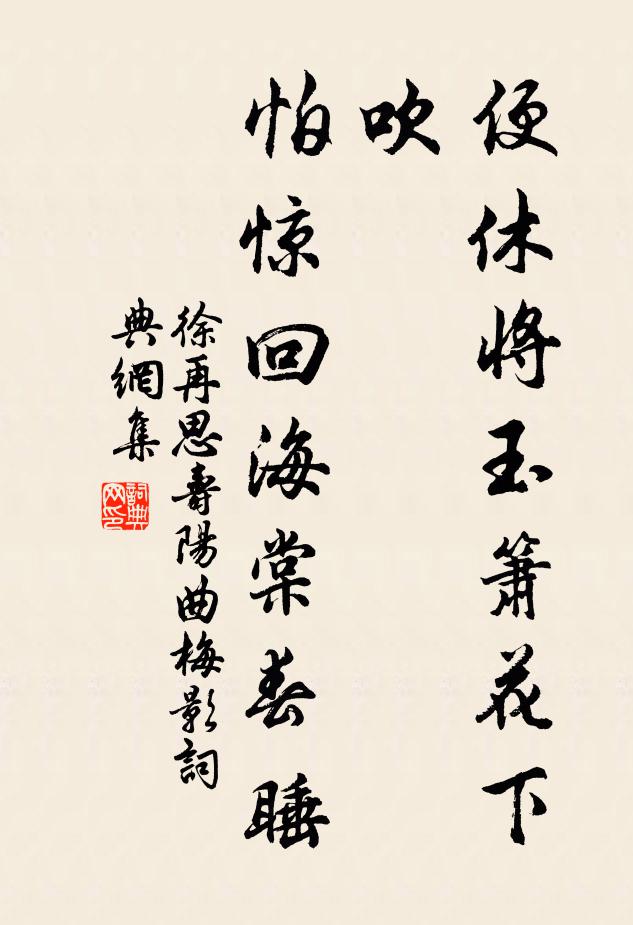 便休將玉簫花下
吹
怕惊回海棠春睡
徐再思壽陽曲梅影詞
典網集
詞典
网印